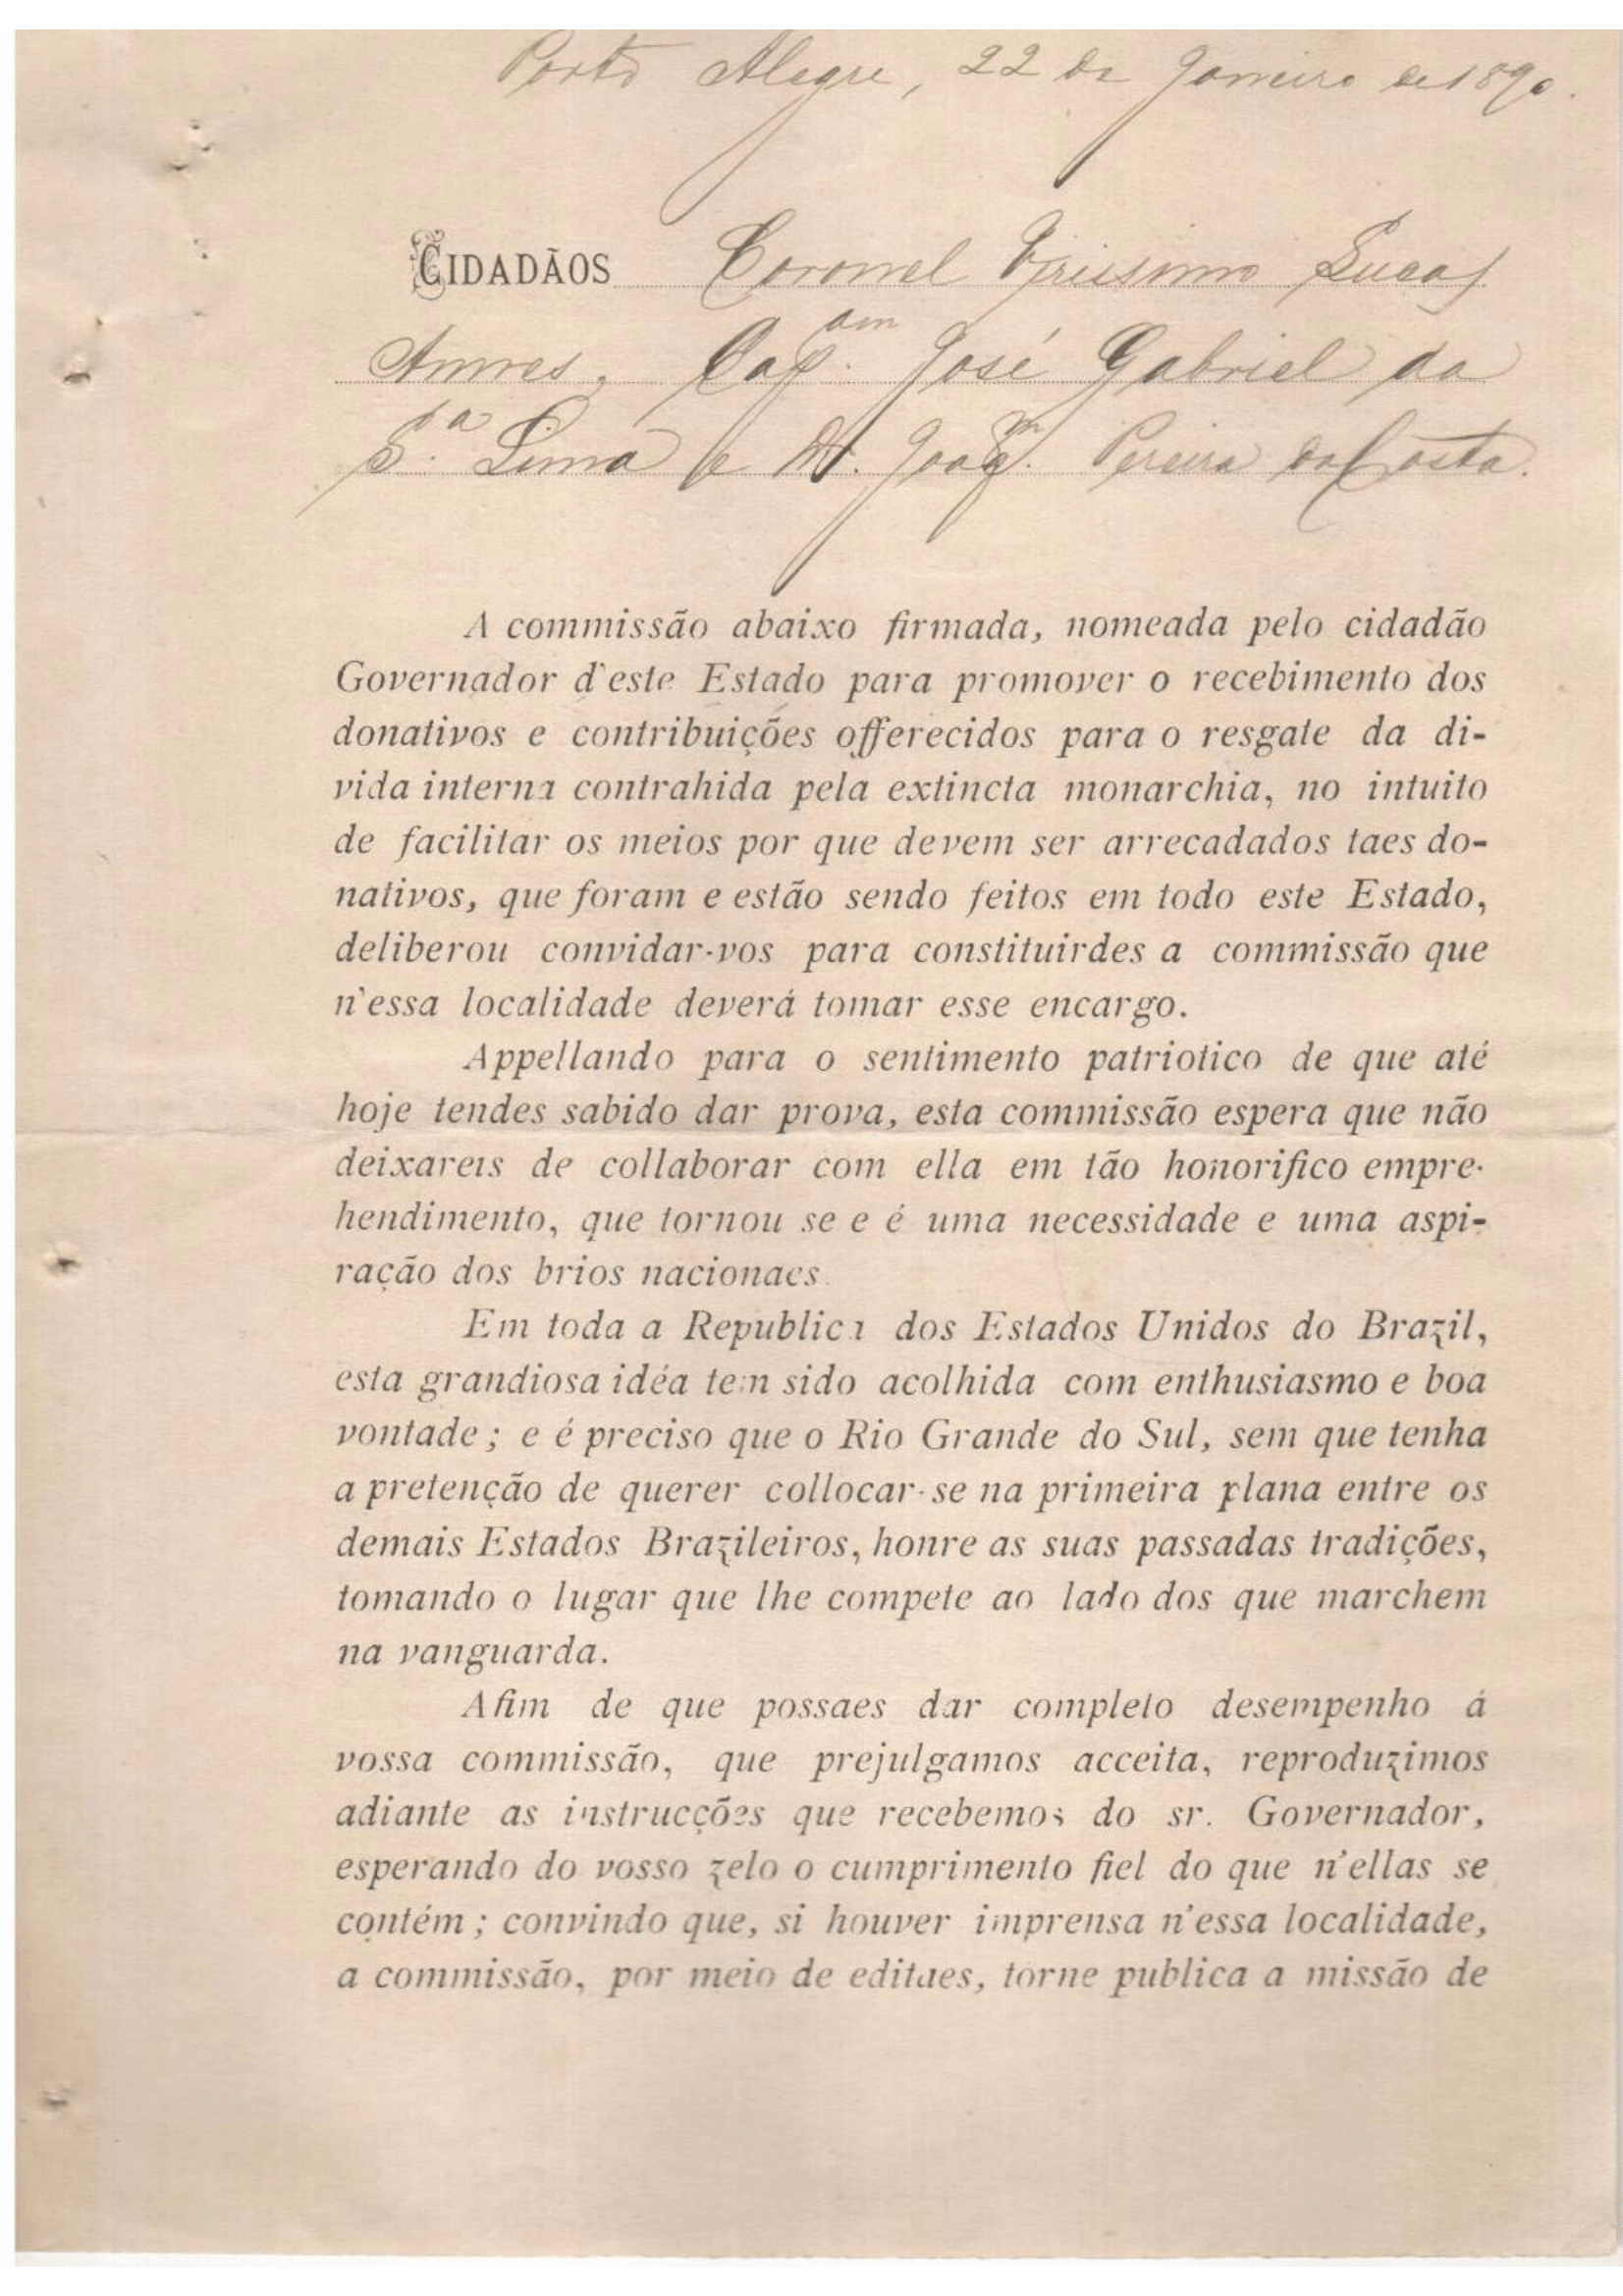 Porto Alegre, 22 de Janeiro de 1890.
CIDADÃOS Coronel Virissimo Lucas
Annes, Cap.am José Gabriel da
S.a Lima e Dr. Joaq.m Pereira da Costa.
A commissão abaixo firmada, nomeada pelo cidadão
Governador d'este Estado para promover o recebimento dos
donativos e contribuições offerecidos para o resgate da di-
vida interna contrahida pela extincta monarchia, no intuito
de facilitar os meios por que devem ser arrecadados taes do-
nativos, que foram e estão sendo feitos em todo este Estado,
deliberou convidar-vos para constituirdes a commissão que
n'essa localidade deverá tomar esse encargo.
Appellando para o sentimento patriotico de que até
hoje tendes sabido dar prova, esta commissão espera que não
deixareis de collaborar com ella em tão honorifico empre-
hendimento, que tornou se e é uma necessidade e uma aspi-
ração dos brios nacionaes.
Em toda a Republica dos Estados Unidos do Brazil,
esta grandiosa idéa tem sido acolhida com enthusiasmo e boa
vontade; e é preciso que o Rio Grande do Sul, sem que tenha
a pretenção de querer collocar-se na primeira plana entre os
demais Estados Brazileiros, honre as suas passadas tradições,
tomando o lugar que lhe compete ao lado dos que marchem
na vanguarda.
Afim de que possaes dar completo desempenho á
vossa commissão, que prejulgamos acceita, reproduzimos
adiante as instrucções que recebemos do sr. Governador,
esperando do vosso zelo o cumprimento fiel do que n'ellas se
contém; convindo que, si houver imprensa n'essa localidade,
a commissão, por meio de editaes, torne publica a missão de